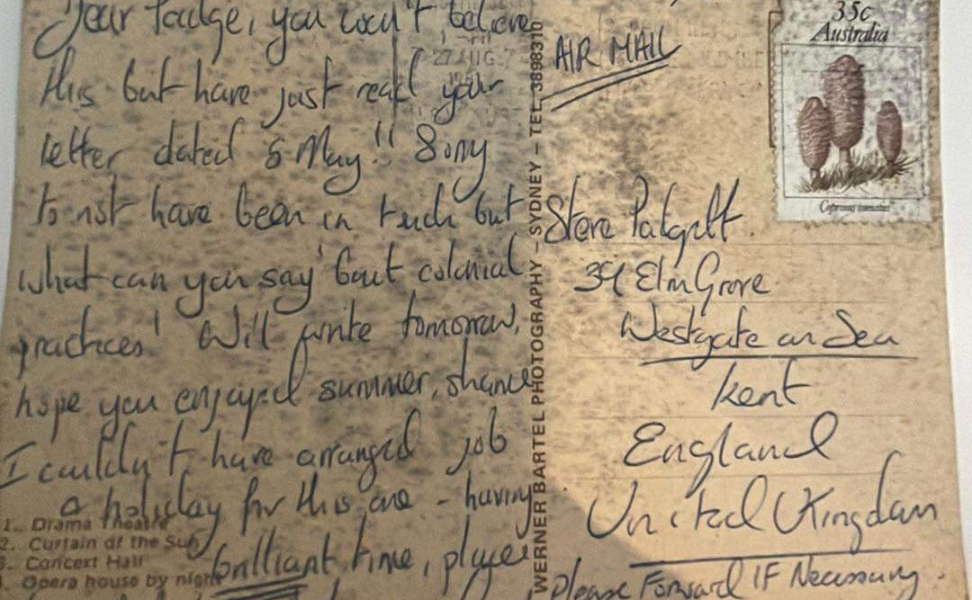 Dear Padge, you won't believe
this but have just read your
letter dated 5 May!! Sorry
to not have been in touch but
what can you say 'bout colonial
practices! Will write tomorrow,
hope you enjoyed summer, shame
I couldn't have arranged job
a holiday for this one - having
brilliant time,
1. Drama Theatre
2. Curtain of the Sun
3. Concert Hall
4. Opera house by night
WERNER BARTEL PHOTOGRAPHY - SYDNEY - TEL. 3898310
27 AUG
AIR MAIL
35c
Australia
Coprinus comatus
Steve
39 Elm Grove
Westgate on Sea
Kent
England
United Kingdom
Please Forward IF Necessary.